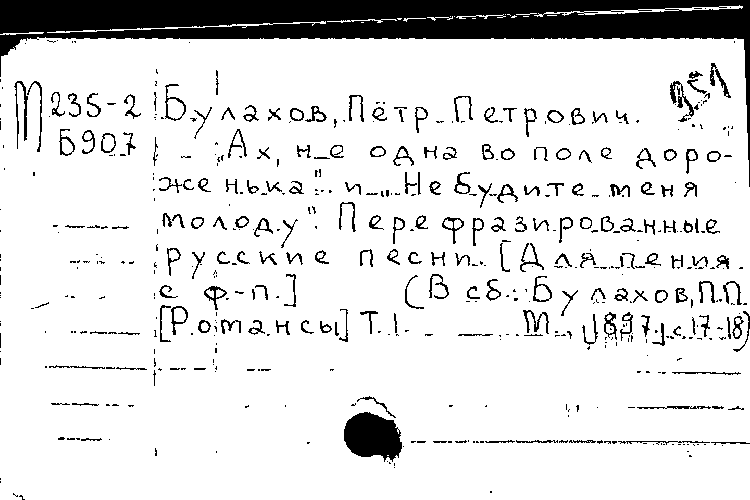 951
М 235-2 Булахов, Пётр Петрович.
Б907 „Ах, не одна во поле доро-
женька" и „Не будите меня
молоду". Перефразированные
русские песни. [Для пения
с ф.-п.] (В сб.: Булахов, П.П.
[Романсы] Т.1. М., [1897], с.17-18)